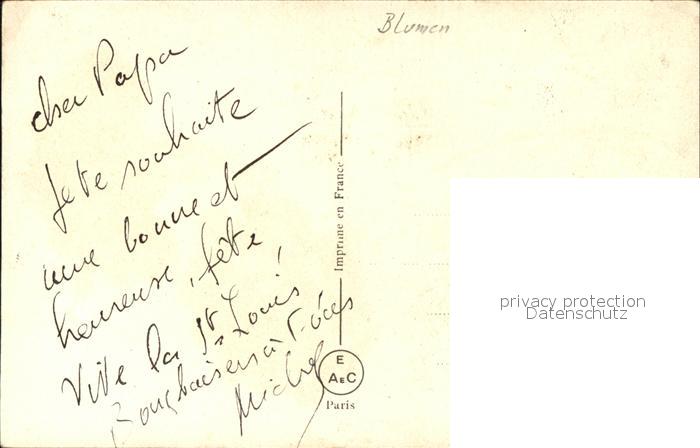 Blumen
cher Papa
je te souhaite
une bonne et
heureuse fête
Vive la St Louis!
Bons baisers à T
Michel
Imprimé en France
E
AEC
Paris
privacy protection
Datenschutz